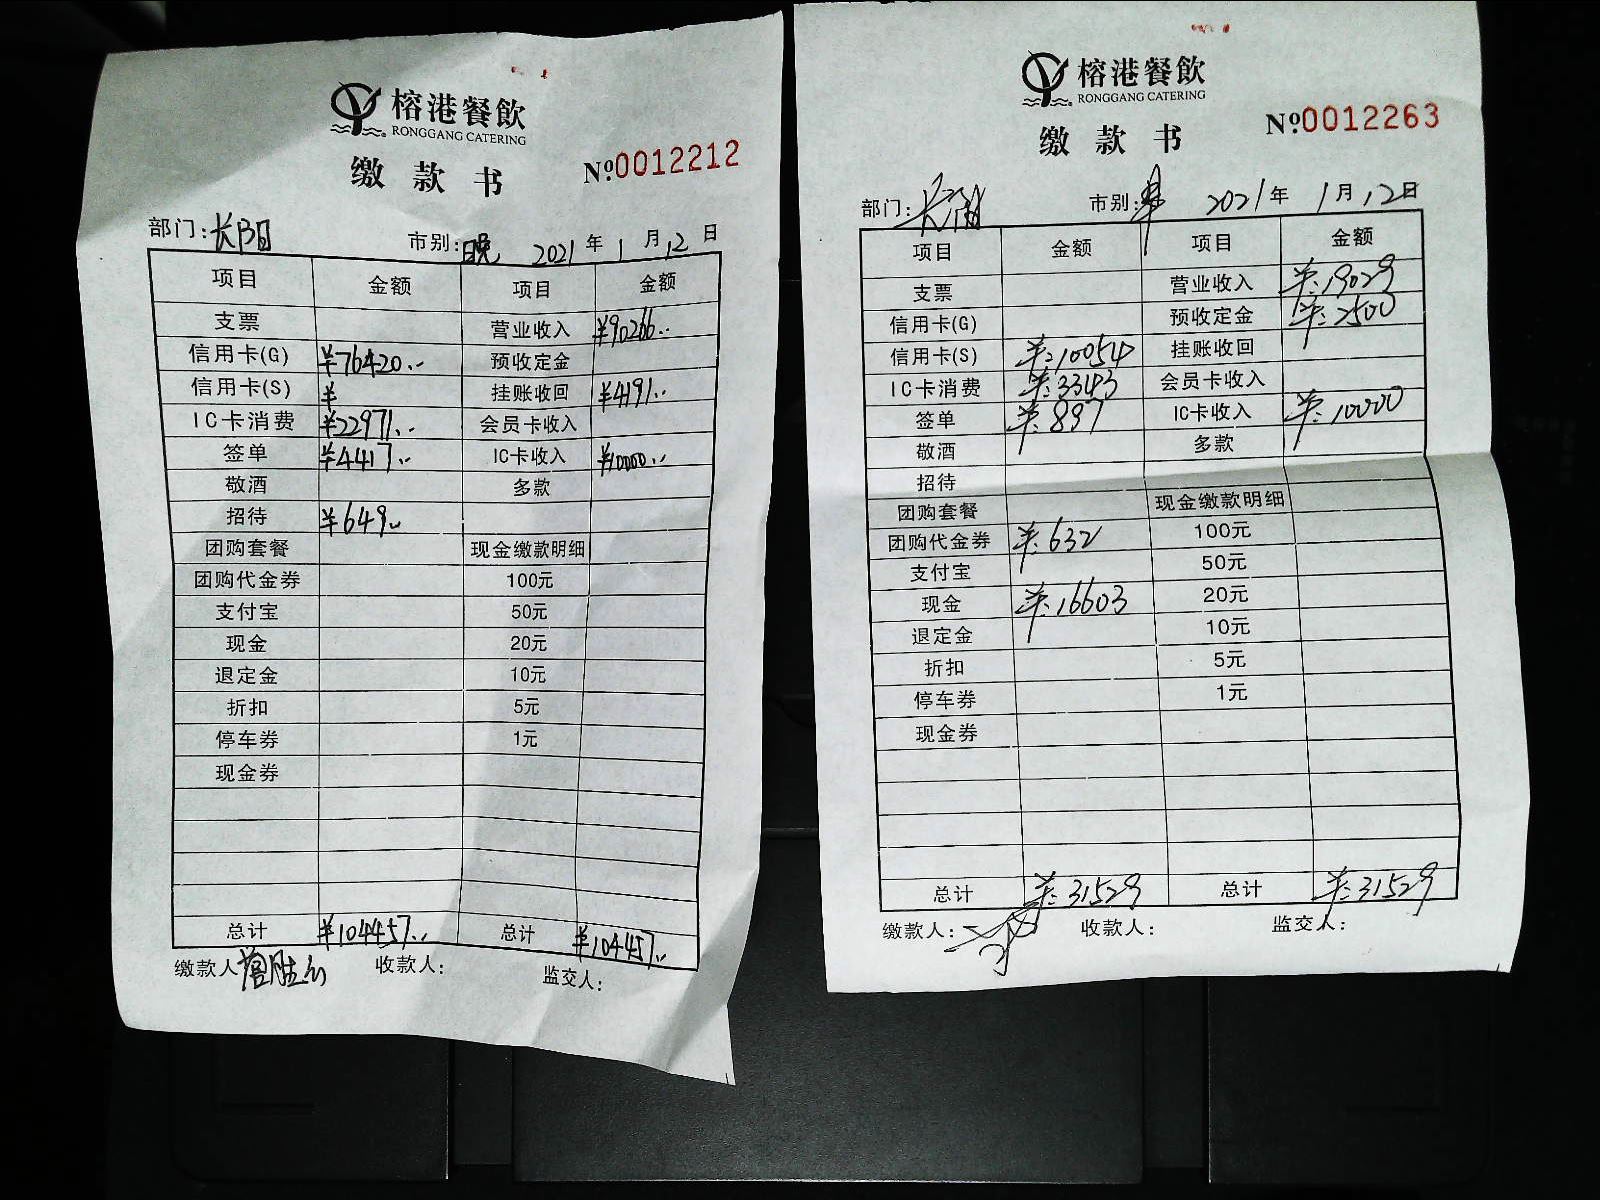 榕港餐飲
RONGGANG CATERING
缴款书
№0012212
部门:长阳 市别:晚 2021年1月12日
项目 金额 项目 金额
支票 营业收入 ¥90266..
信用卡(G) ¥76420.. 预收定金
信用卡(S) ¥ 挂账收回 ¥4191..
IC卡消费 ¥22971.. 会员卡收入
签单 ¥4417.. IC卡收入 ¥10000..
敬酒 多款
招待 ¥649..
团购套餐 现金缴款明细
团购代金券 100元
支付宝 50元
现金 20元
退定金 10元
折扣 5元
停车券 1元
现金券
总计 ¥104457.. 总计 ¥104457..
缴款人 收款人: 监交人:
榕港餐飲
RONGGANG CATERING
缴款书
№0012263
部门: 市别: 2021年1月12日
项目 金额 项目 金额
支票 营业收入 ¥:19029
信用卡(G) 预收定金 ¥:2500
信用卡(S) ¥:10054 挂账收回
IC卡消费 ¥:3343 会员卡收入
签单 ¥:897 IC卡收入 ¥:10000
敬酒 多款
招待
团购套餐 现金缴款明细
团购代金券 ¥:632 100元
支付宝 50元
现金 ¥:16603 20元
退定金 10元
折扣 5元
停车券 1元
现金券
总计 ¥:31529 总计 ¥:31529
缴款人: 收款人: 监交人: